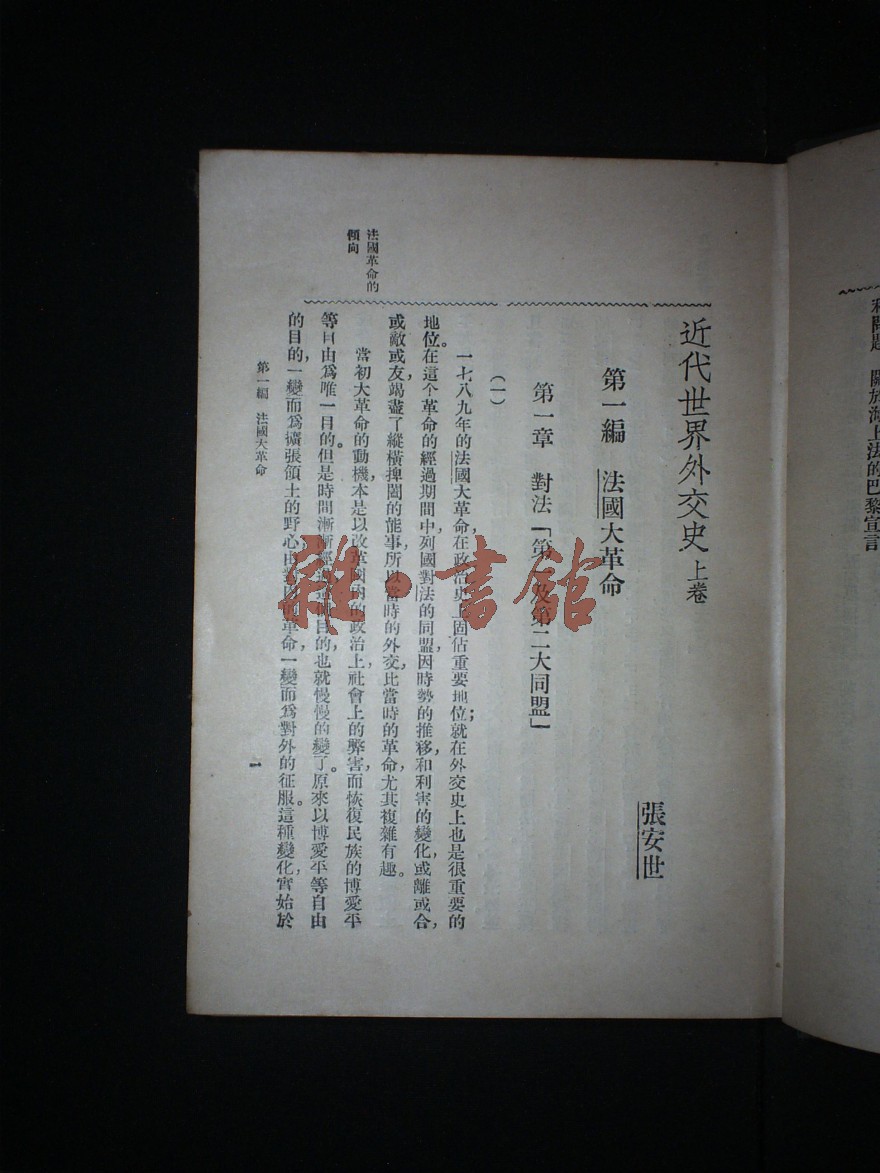 利問題 關於海上法的巴黎宣言
近代世界外交史 上卷
張安世
第一編 法國大革命
第一章 對法「第一及第二大同盟」
(一)
一七八九年的法國大革命,在政治史上固佔重要地位;就在外交史上也是很重要的
地位。在這个革命的經過期間中,列國對法的同盟,因時勢的推移,和利害的變化,或離或合,
或敵或友,竭盡了縱橫捭闔的能事,所以當時的外交,比當時的革命,尤其複雜有趣。
法國革命的
傾向
當初大革命的動機,本是以改革國內的政治上,社會上的弊害,而恢復民族的博愛平
等自由爲唯一目的。但是時間漸漸經過,這個目的,也就慢慢的變了。原來以博愛平等自由
的目的,一變而爲擴張領土的野心;由對內的革命,一變而爲對外的征服。這種變化,實始於
第一編 法國大革命
一
雜·書館